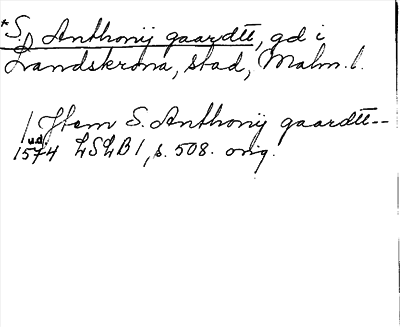 *S. Anthonij gaardtt, gd i
Landskrona, stad, Malm. l.
/ Item S. Anthonij gaardtt--
ud.
1574 LSLB 1, s. 508. orig.